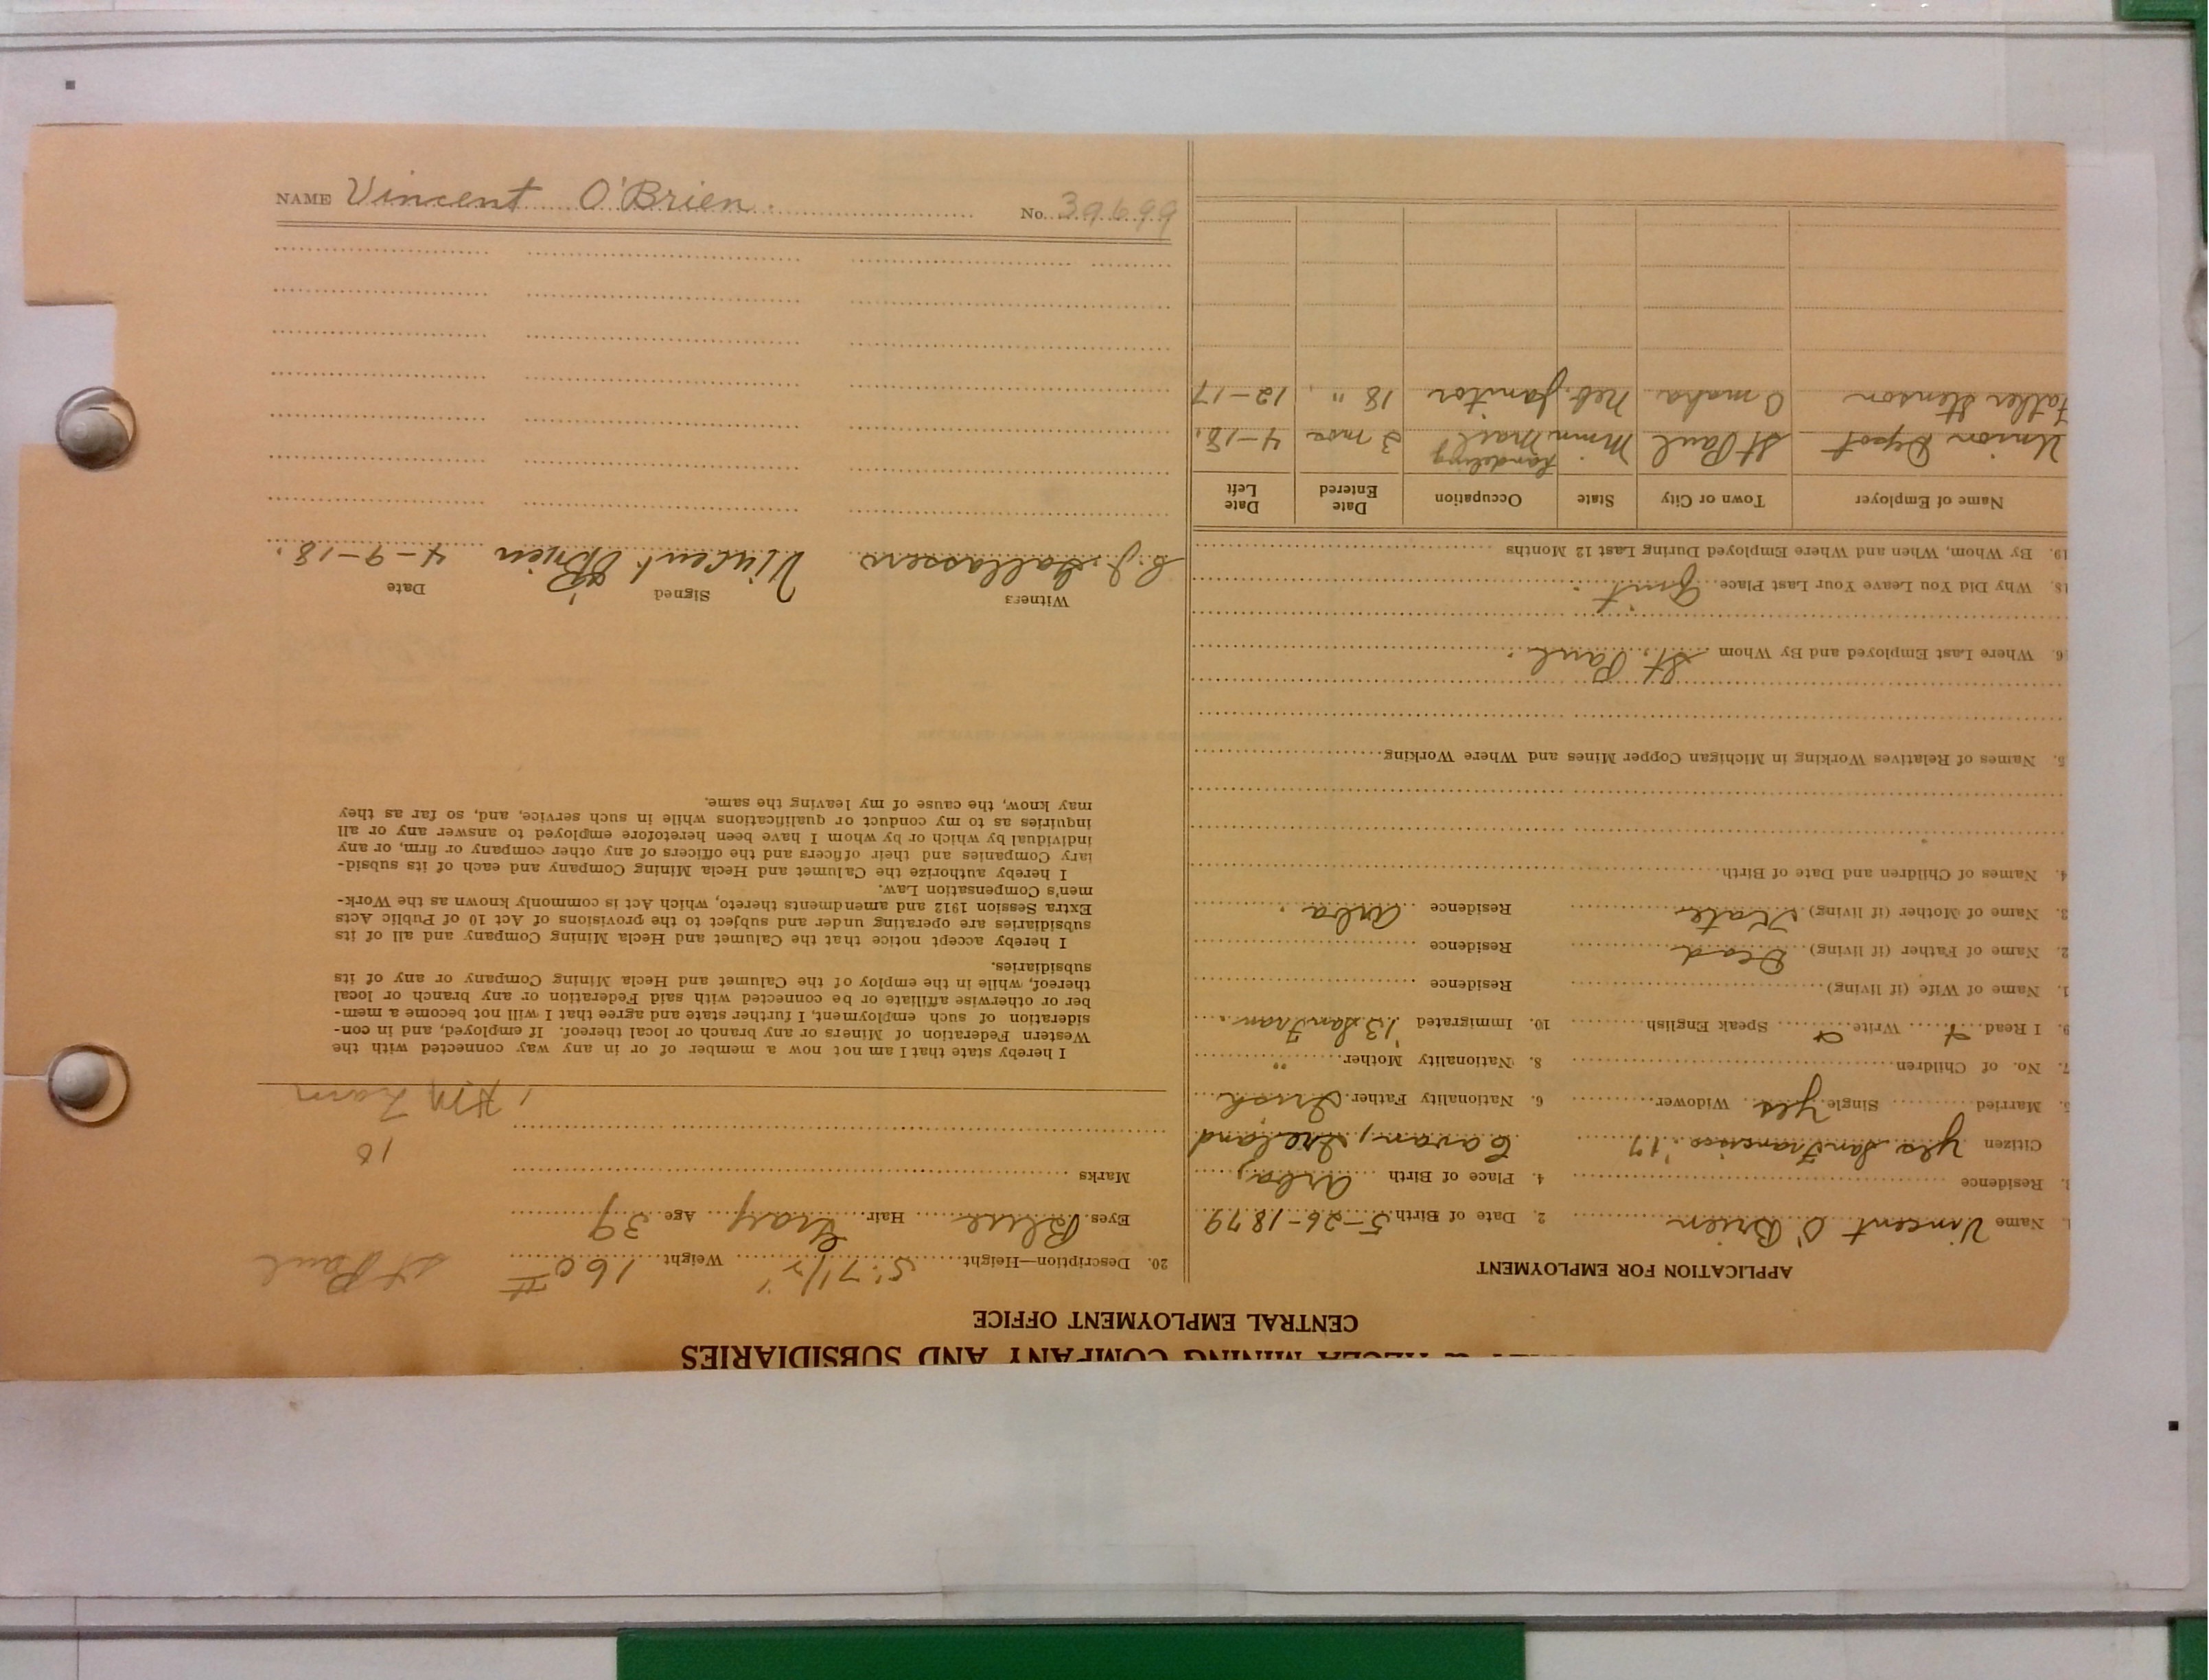 & HECLA MINING COMPANY AND SUBSIDIARIES
CENTRAL EMPLOYMENT OFFICE
APPLICATION FOR EMPLOYMENT
1. Name Vincent O'Brien 2. Date of Birth 5-26-1879
3. Residence 4. Place of Birth Arba,
Citizen Yes San Francisco '17. Cavan, Ireland
5. Married Single Yes Widower 6. Nationality Father Irish
7. No. of Children 8. Nationality Mother "
9. I Read Write Speak English 10. Immigrated '13 San Fran.
1. Name of Wife (if living) Residence
2. Name of Father (if living) Dead Residence
3. Name of Mother (if living) Kate Residence Arba.
4. Names of Children and Date of Birth
5. Names of Relatives Working in Michigan Copper Mines and Where Working
6. Where Last Employed and By Whom St. Paul.
18. Why Did You Leave Your Last Place Quit.
19. By Whom, When and Where Employed During Last 12 Months
Name of Employer Town or City State Occupation Date Entered Date Left
Union Depot St Paul Minn Handling Mail 3 mos 4-18.
Father Stenson Omaha Neb. Janitor 18 " 12-17
20. Description—Height 5' 7 1/2" Weight 160 # St Paul
Eyes Blue Hair Gray Age 39
Marks
18
I hereby state that I am not now a member of or in any way connected with the
Western Federation of Miners or any branch or local thereof. If employed, and in con-
sideration of such employment, I further state and agree that I will not become a mem-
ber or otherwise affiliate or be connected with said Federation or any branch or local
thereof, while in the employ of the Calumet and Hecla Mining Company or any of its
subsidiaries.
I hereby accept notice that the Calumet and Hecla Mining Company and all of its
subsidiaries are operating under and subject to the provisions of Act 10 of Public Acts
Extra Session 1912 and amendments thereto, which Act is commonly known as the Work-
men's Compensation Law.
I hereby authorize the Calumet and Hecla Mining Company and each of its subsid-
iary Companies and their officers and the officers of any other company or firm, or any
individual by which or by whom I have been heretofore employed to answer any or all
inquiries as to my conduct or qualifications while in such service, and, so far as they
may know, the cause of my leaving the same.
Witness Signed Date
Vincent O'Brien 4-9-18.
NAME Vincent O'Brien. No. 39699